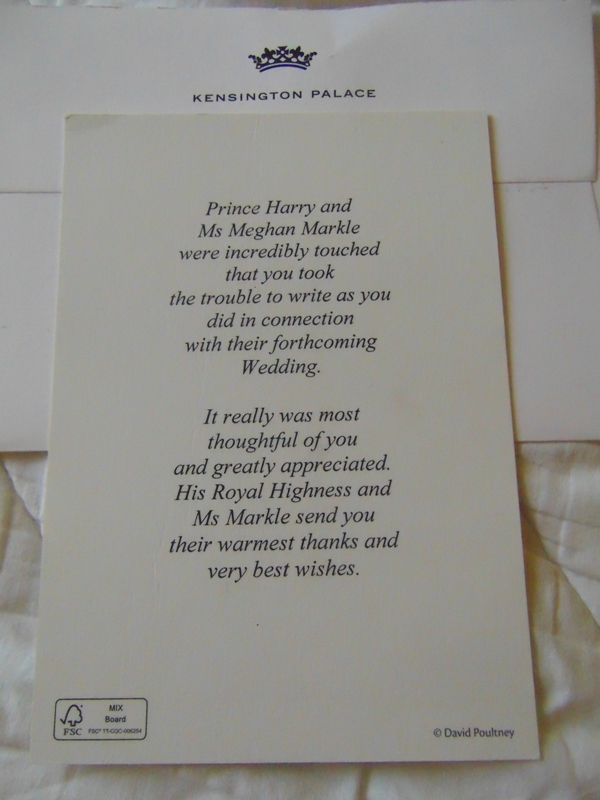 KENSINGTON PALACE
Prince Harry and
Ms Meghan Markle
were incredibly touched
that you took
the trouble to write as you
did in connection
with their forthcoming
Wedding.
It really was most
thoughtful of you
and greatly appreciated.
His Royal Highness and
Ms Markle send you
their warmest thanks and
very best wishes.
MIX
Board
FSC
© David Poultney